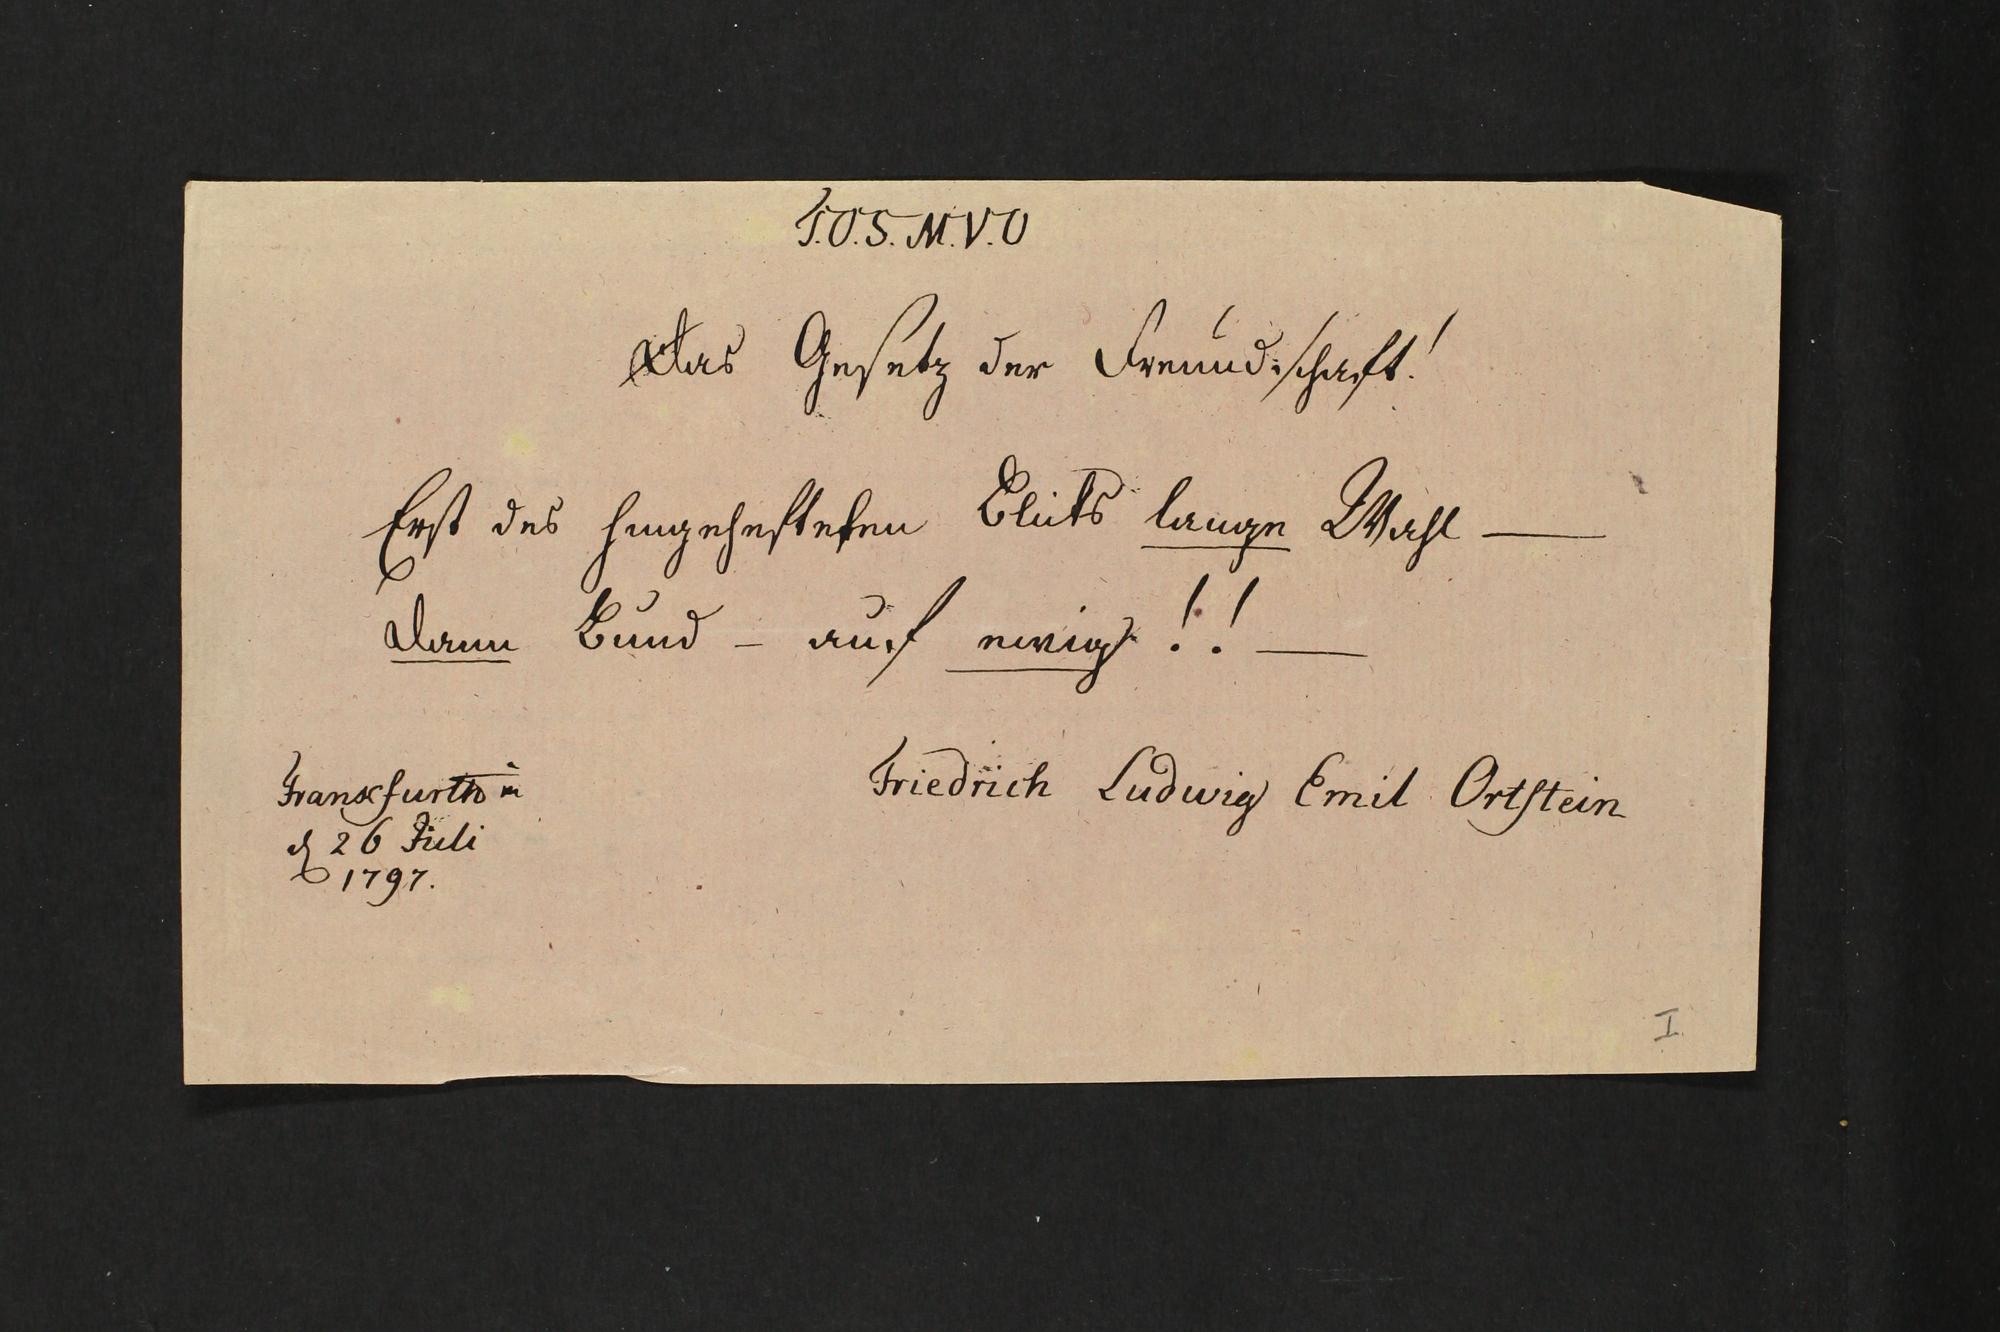 T.O.S.M.V.O
Das Gesetz der Freundschaft!
Erst des Bluts lange Wahl —
Dann Bund – auf ewig!! —
Friedrich Ludwig Emil Ortstein
Frankfurth
d 26 Juli
1797.
I